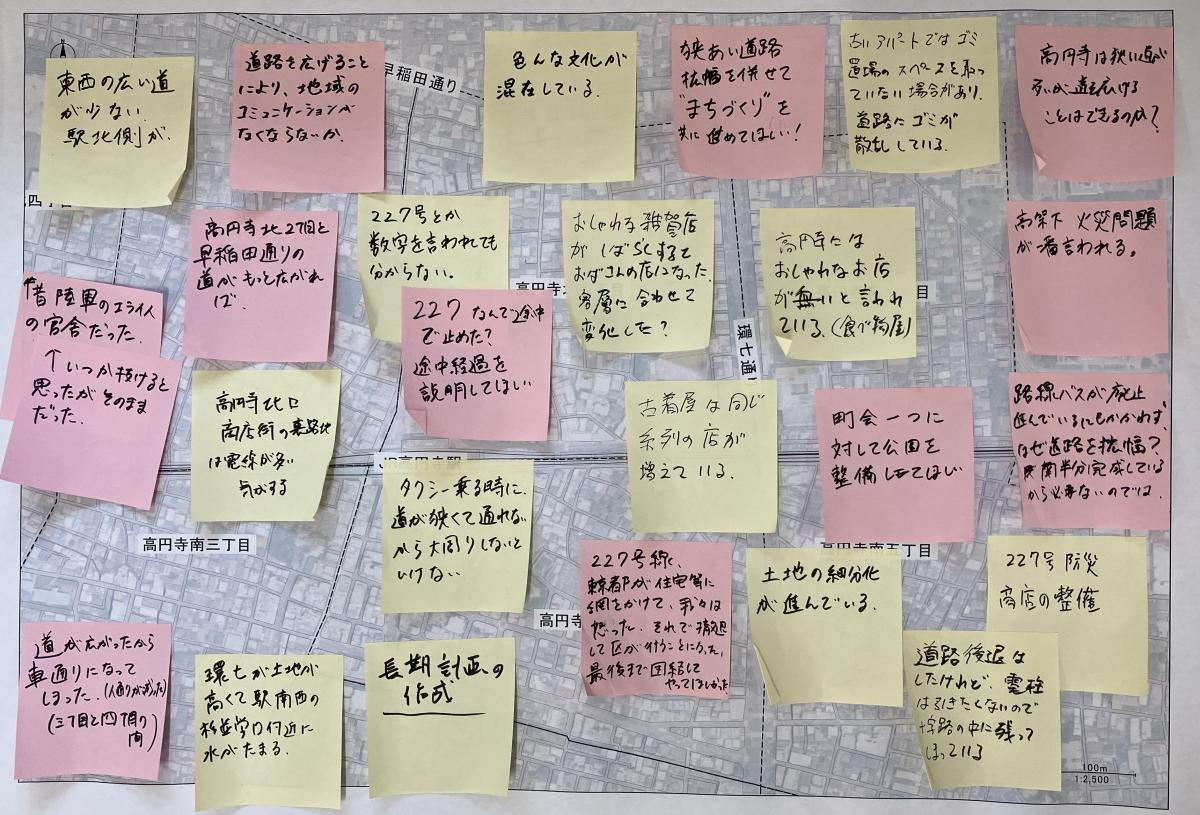 東西の広い道
が少ない.
駅北側が.
道路を広げること
により、地域の
コミュニケーションが
なくならないか.
早稲田通り
色んな文化が
混在している.
狭あい道路
拡幅を併せて
"まちづくり"を
共に進めてほしい!
古いアパートではゴミ
置場のスペースを取っ
ていない場合があり.
道路にゴミが
散乱している.
高円寺は狭い道が
多いが道を広げる
ことはできるのか?
高円寺北2丁目と
早稲田通りの
道がもっと広がれ
ば.
227号とか
数字を言われても
分からない。
おしゃれな雑貨店
がしばらくすると
おばさんの店になった.
客層に合わせて
変化した?
高円寺には
おしゃれなお店
が無いと言われ
ている.(食べ物屋)
高架下 火災問題
が一番言われる。
昔陸軍のエライ人
の官舎だった.
↑いつか抜けると
思ったがそのまま
だった.
高円寺北口
商店街の裏路地
は電線が多い
気がする
227なんで途中
で止めた?
途中経過を
説明してほしい
環七通り
古着屋は同じ
系列の店が
増えている.
町会一つに
対して公園を
整備してほしい
路線バスが廃止
進んでいるにもかかわらず、
なぜ道路を拡幅?
半分完成している
から必要ないのでは.
JR高円寺駅
タクシー乗る時に.
道が狭くて通れない
から大周りしないと
いけない
高円寺南三丁目
高円寺南五丁目
227号線、
東京都が住宅等に
網をかけて、我々は
怒った。それで撤退
して区が行うことになった.
最後まで団結して
やってほしかった
土地の細分化
が進んでいる.
227号 防災
商店の整備
道が広がったから
車通りになって
しまった.(人通りが減った)
(三丁目と四丁目の
間)
環七が土地が
高くて駅南西の
杉並学院付近に
水がたまる.
長期計画の
作成
道路後退は
したけれど、電柱
は引きたくないので
道路の中に残って
しまっている
100m
1:2,500